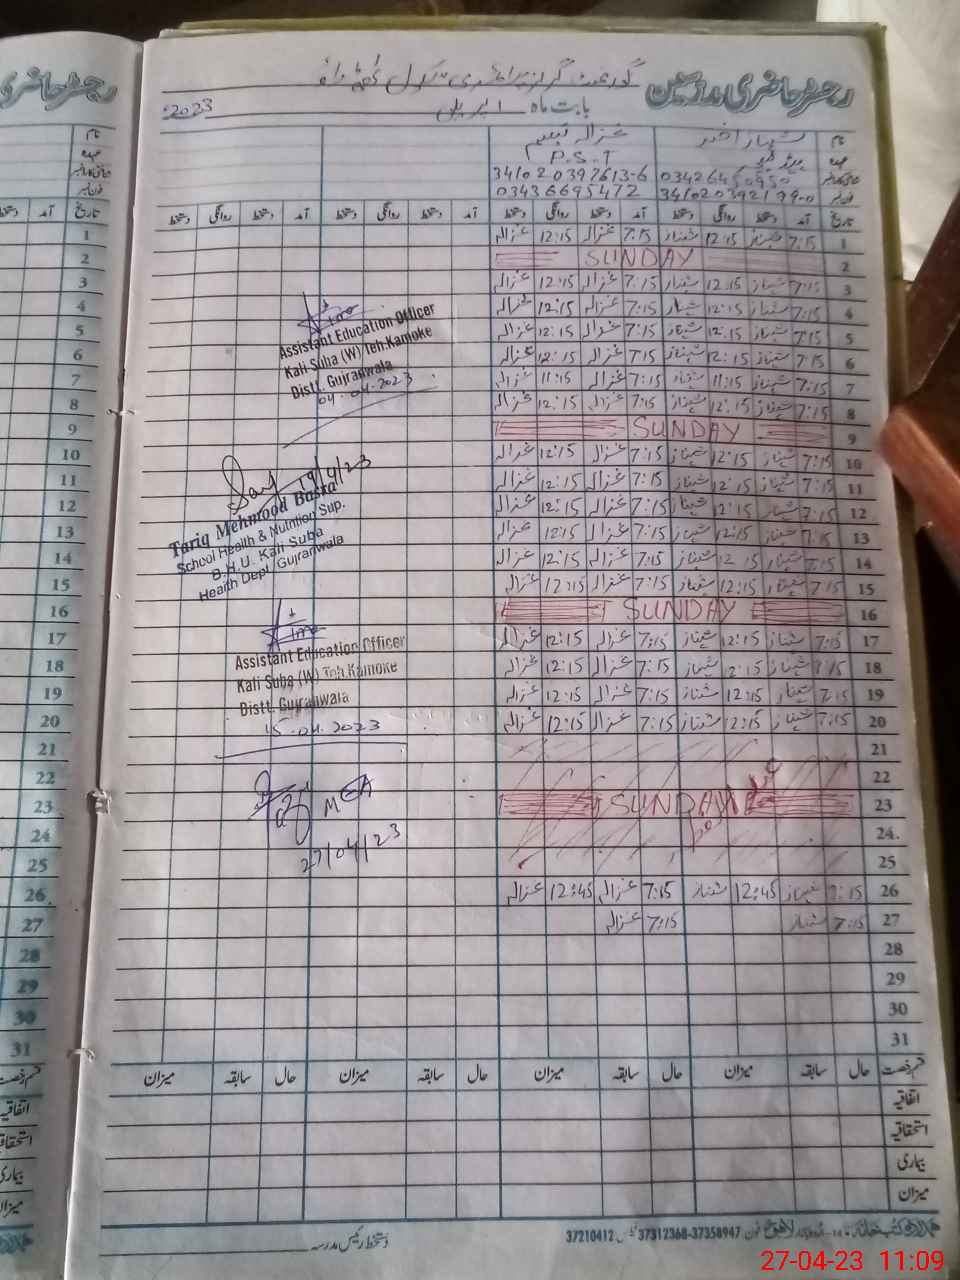 رجسٹر حاضری مدرسین گورنمنٹ گرلز پرائمری سکول
بابت ماہ اپریل 2023ء
نام شہناز اختر غزالہ تبسم
عہدہ ہیڈ ٹیچر P.S.T
شناختی کارڈ نمبر 03426450950 341020397613-6
فون نمبر 341020392199-0 03436695472
تاریخ آمد دستخط روانگی دستخط آمد دستخط روانگی دستخط آمد دستخط روانگی دستخط آمد دستخط روانگی دستخط
1 7:15 شہناز 12:15 شہناز 7:15 غزالہ 12:15 غزالہ
2 SUNDAY
3 7:15 شہناز 12:15 شہناز 7:15 غزالہ 12:15 غزالہ
4 7:15 شہناز 12:15 شہناز 7:15 غزالہ 12:15 غزالہ
5 7:15 شہناز 12:15 شہناز 7:15 غزالہ 12:15 غزالہ
6 7:15 شہناز 12:15 شہناز 7:15 غزالہ 12:15 غزالہ
7 7:15 شہناز 11:15 شہناز 7:15 غزالہ 11:15 غزالہ
8 7:15 شہناز 12:15 شہناز 7:15 غزالہ 12:15 غزالہ
9 SUNDAY
10 7:15 شہناز 12:15 شہناز 7:15 غزالہ 12:15 غزالہ
11 7:15 شہناز 12:15 شہناز 7:15 غزالہ 12:15 غزالہ
12 7:15 شہناز 12:15 شہناز 7:15 غزالہ 12:15 غزالہ
13 7:15 شہناز 12:15 شہناز 7:15 غزالہ 12:15 غزالہ
14 7:15 شہناز 12:15 شہناز 7:15 غزالہ 12:15 غزالہ
15 7:15 شہناز 12:15 شہناز 7:15 غزالہ 12:15 غزالہ
16 SUNDAY
17 7:15 شہناز 12:15 شہناز 7:15 غزالہ 12:15 غزالہ
18 7:15 شہناز 12:15 شہناز 7:15 غزالہ 12:15 غزالہ
19 7:15 شہناز 12:15 شہناز 7:15 غزالہ 12:15 غزالہ
20 7:15 شہناز 12:15 شہناز 7:15 غزالہ 12:15 غزالہ
21
22
23 SUNDAY
24
25
26 7:15 شہناز 12:45 شہناز 7:15 غزالہ 12:45 غزالہ
27 7:15 شہناز 7:15 غزالہ
28
29
30
31
Assistant Education Officer
Kali Suba (W) Teh.Kamoke
Distt. Gujranwala
04.04.2023
19/4/23
Tariq Mehmood Basra
School Health & Nutrition Sup.
B.H.U. Kali Suba
Health Dept. Gujranwala
Assistant Education Officer
Kali Suba (W) Teh.Kamoke
Distt. Gujranwala
15.04.2023
MEA
27/04/23
قسم رخصت حال سابقہ میزان حال سابقہ میزان حال سابقہ میزان حال سابقہ میزان
اتفاقیہ
استحقاقیہ
بیماری
میزان
لاہور فون 37312368-37358947 37210412
دستخط رئیس مدرسہ
رجسٹر حاضری
نام
عہدہ
شناختی کارڈ نمبر
فون نمبر
تاریخ آمد دستخط
1
2
3
4
5
6
7
8
9
10
11
12
13
14
15
16
17
18
19
20
21
22
23
24
25
26
27
28
29
30
31
قسم رخصت
اتفاقیہ
استحقاقیہ
بیماری
میزان
27-04-23 11:09